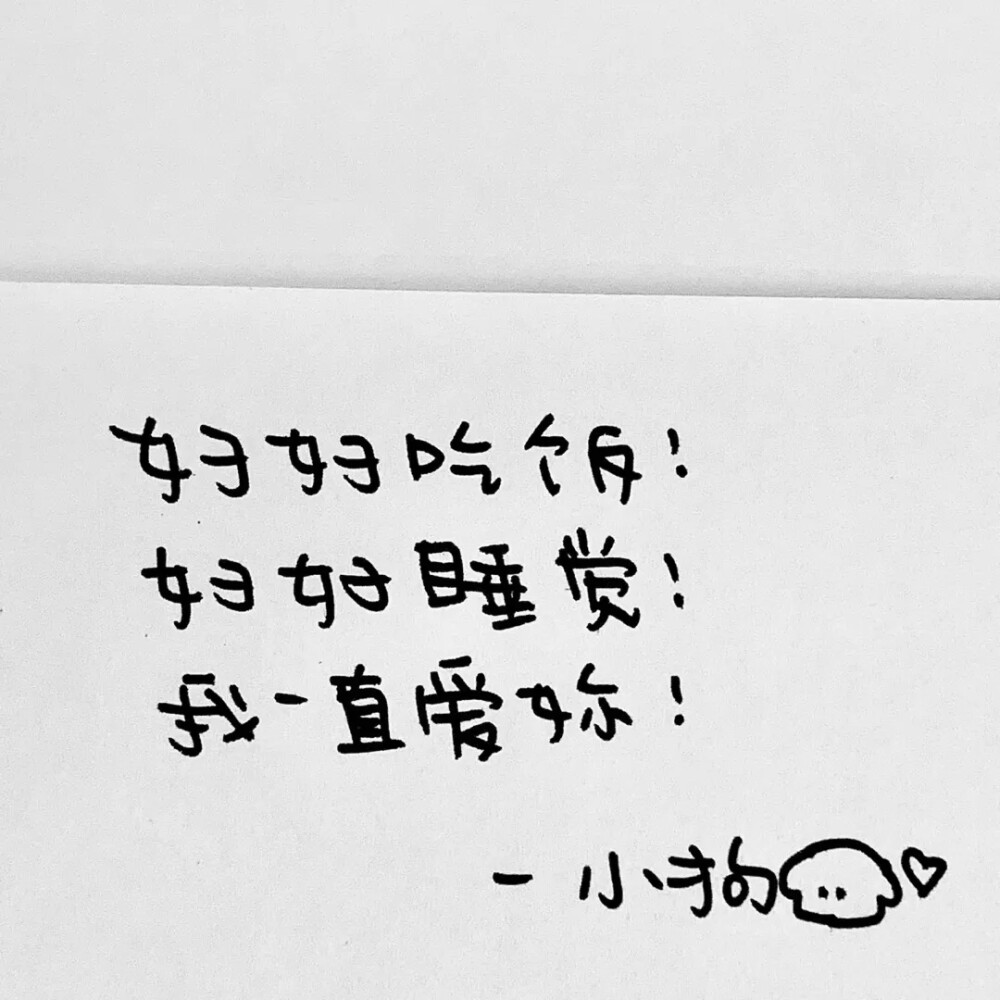 好好吃饭!
好好睡觉!
我一直爱妳!
- 小狗